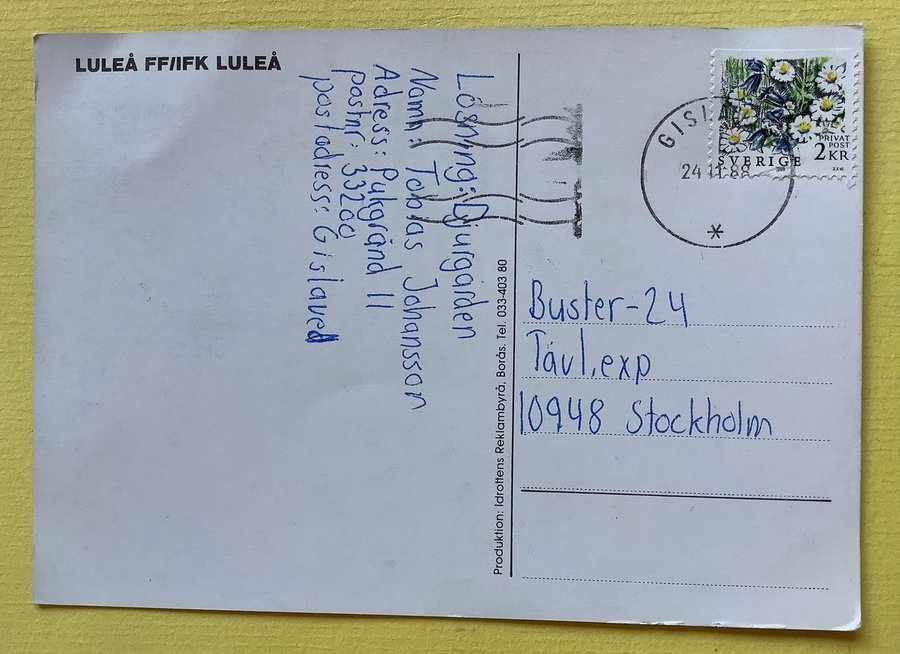 LULEÅ FF/IFK LULEÅ
Lösning: Djurgården
Namn: Tobias Johansson
Adress: Pukgränd 11
postnr: 33200
postadress: Gislaved
Produktion: Idrottens Reklambyrå, Borås. Tel. 033-403 80
GISLAVED
24 11 88
SVERIGE
PRIVAT
POST
2 KR
Buster-24
Tävl.exp
10948 Stockholm